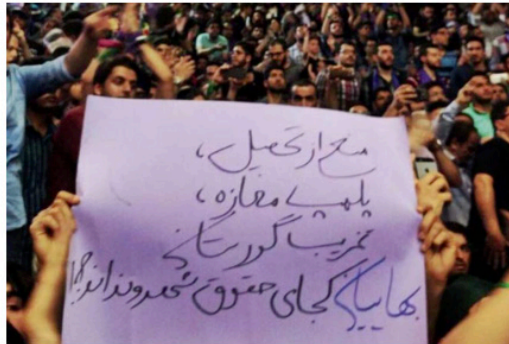 منع از تحصیل،
پلمپ مغازه،
تخریب گورستان
بهاییان کجای حقوق شهروندیه؟!